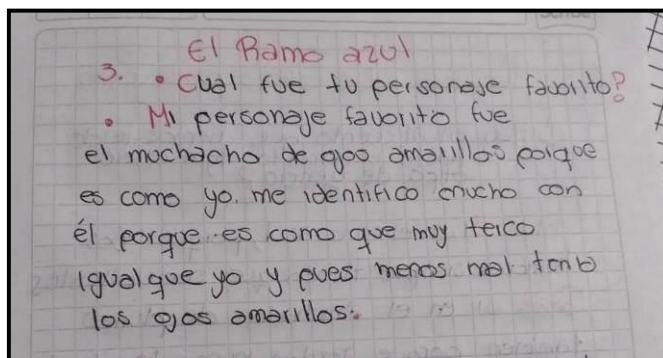 El Ramo azul
3. • Cual fue tu personaje favorito?
• Mi personaje favorito fue
el muchacho de ojos amarillos porque
es como yo. me identifico mucho con
él porque es como que muy terco
igual que yo y pues menos mal tenia
los ojos amarillos.